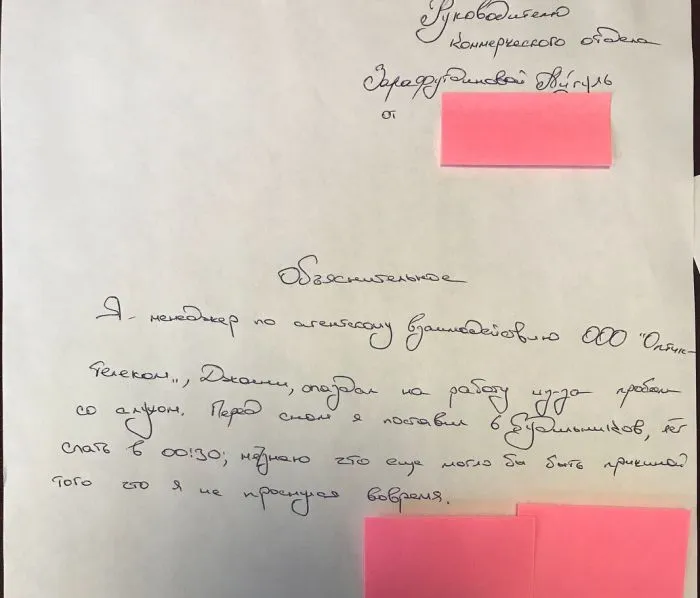 Руководителю
коммерческого отдела
Зарафутдиновой Айгуль
от
Объяснительное
Я - менеджер по агентскому взаимодействию ООО "Оптик-
Телеком", Джонни, опоздал на работу из-за проблем
со слухом. Перед сном я поставил 6 будильников, лёг
спать в 00:30; не знаю что еще могло бы быть причиной
того что я не проснулся вовремя.